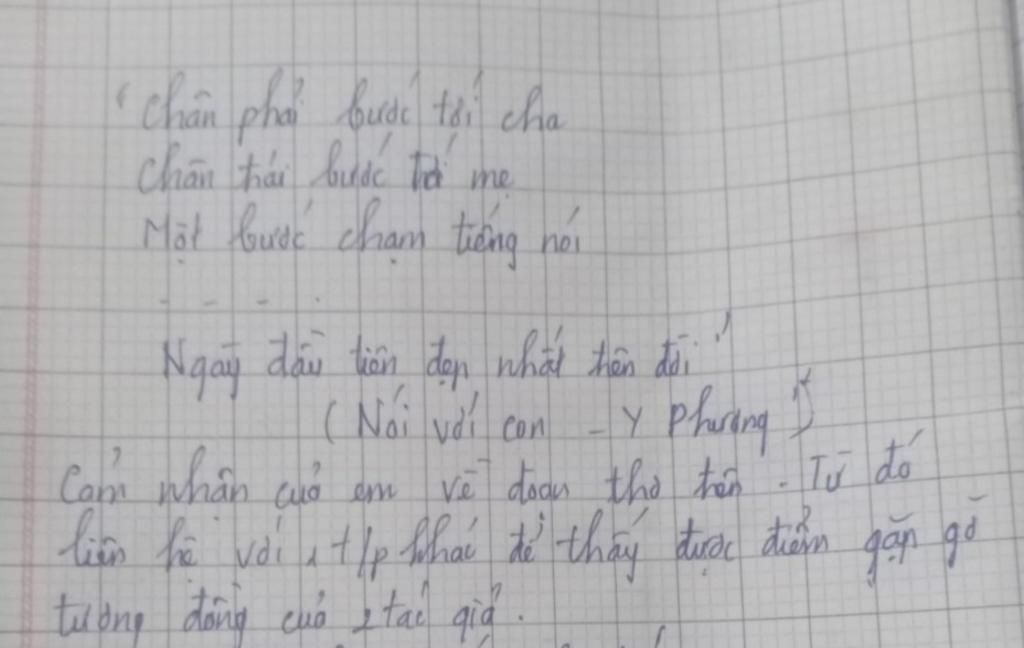 "Chân phải bước tới cha
Chân trái bước tới mẹ
Một bước chạm tiếng nói
- - - .
Ngày đầu tiên đẹp nhất trên đời."
(Nói với con - Y Phương)
Cảm nhận của em về đoạn thơ trên. Từ đó
liên hệ với 1 t/p khác để thấy được điểm gặp gỡ
tương đồng của 2 tác giả.